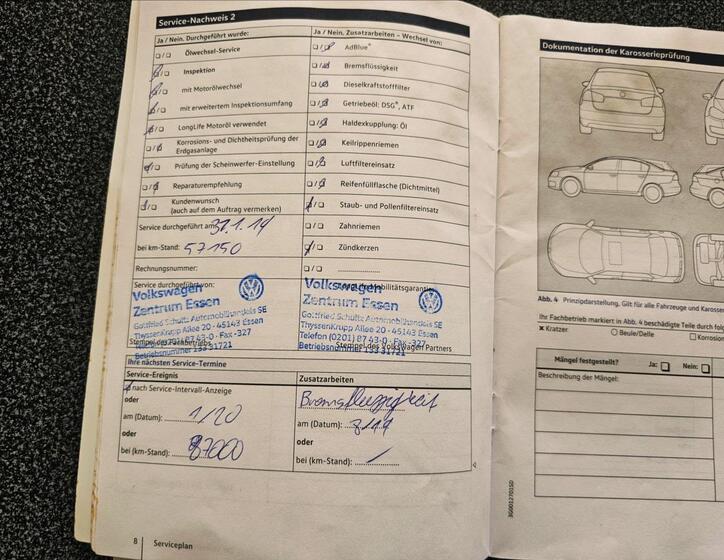 Service-Nachweis 2
Ja / Nein. Durchgeführt wurde:
Ölwechsel-Service
Inspektion
mit Motorölwechsel
mit erweitertem Inspektionsumfang
LongLife Motoröl verwendet
Korrosions- und Dichtheitsprüfung der
Erdgasanlage
Prüfung der Scheinwerfer-Einstellung
Reparaturempfehlung
Kundenwunsch
(auch auf dem Auftrag vermerken)
Service durchgeführt am:
bei km-Stand: 57150
Rechnungsnummer:
Service durchgeführt von:
Volkswagen
Zentrum Essen
Gottfried Schultz Automobilhandels SE
ThyssenKrupp Allee 20 - 45143 Essen
Ja / Nein. Zusatzarbeiten – Wechsel von:
AdBlue®
Bremsflüssigkeit
Dieselkraftstofffilter
Getriebeöl: DSG®, ATF
Haldexkupplung: Öl
Keilrippenriemen
Luftfiltereinsatz
Reifenfüllflasche (Dichtmittel)
Staub- und Pollenfiltereinsatz
Zahnriemen
Zündkerzen
Volkswagen
Zentrum Essen
Gottfried Schultz Automobilhandels SE
ThyssenKrupp Allee 20 - 45143 Essen
Telefon (0201) 87 43-0 · Fax -327
Stempel des Volkswagen Partners
Ihre nächsten Service-Termine
Service-Ereignis
nach Service-Intervall-Anzeige
oder
am (Datum): 1/20
oder
bei (km-Stand): 87000
Zusatzarbeiten
Bremsflüssigkeit
am (Datum):
oder
bei (km-Stand):
8
Serviceplan
Dokumentation der Karosserieprüfung
Abb. 4 Prinzipdarstellung, Gilt für alle Fahrzeuge und Karosser
Ihr Fachbetrieb markiert in Abb. 4 beschädigte Teile durch fo
Kratzer
Beule/Delle
Korrosion
Mängel festgestellt?
Ja:
Nein:
Beschreibung der Mängel: